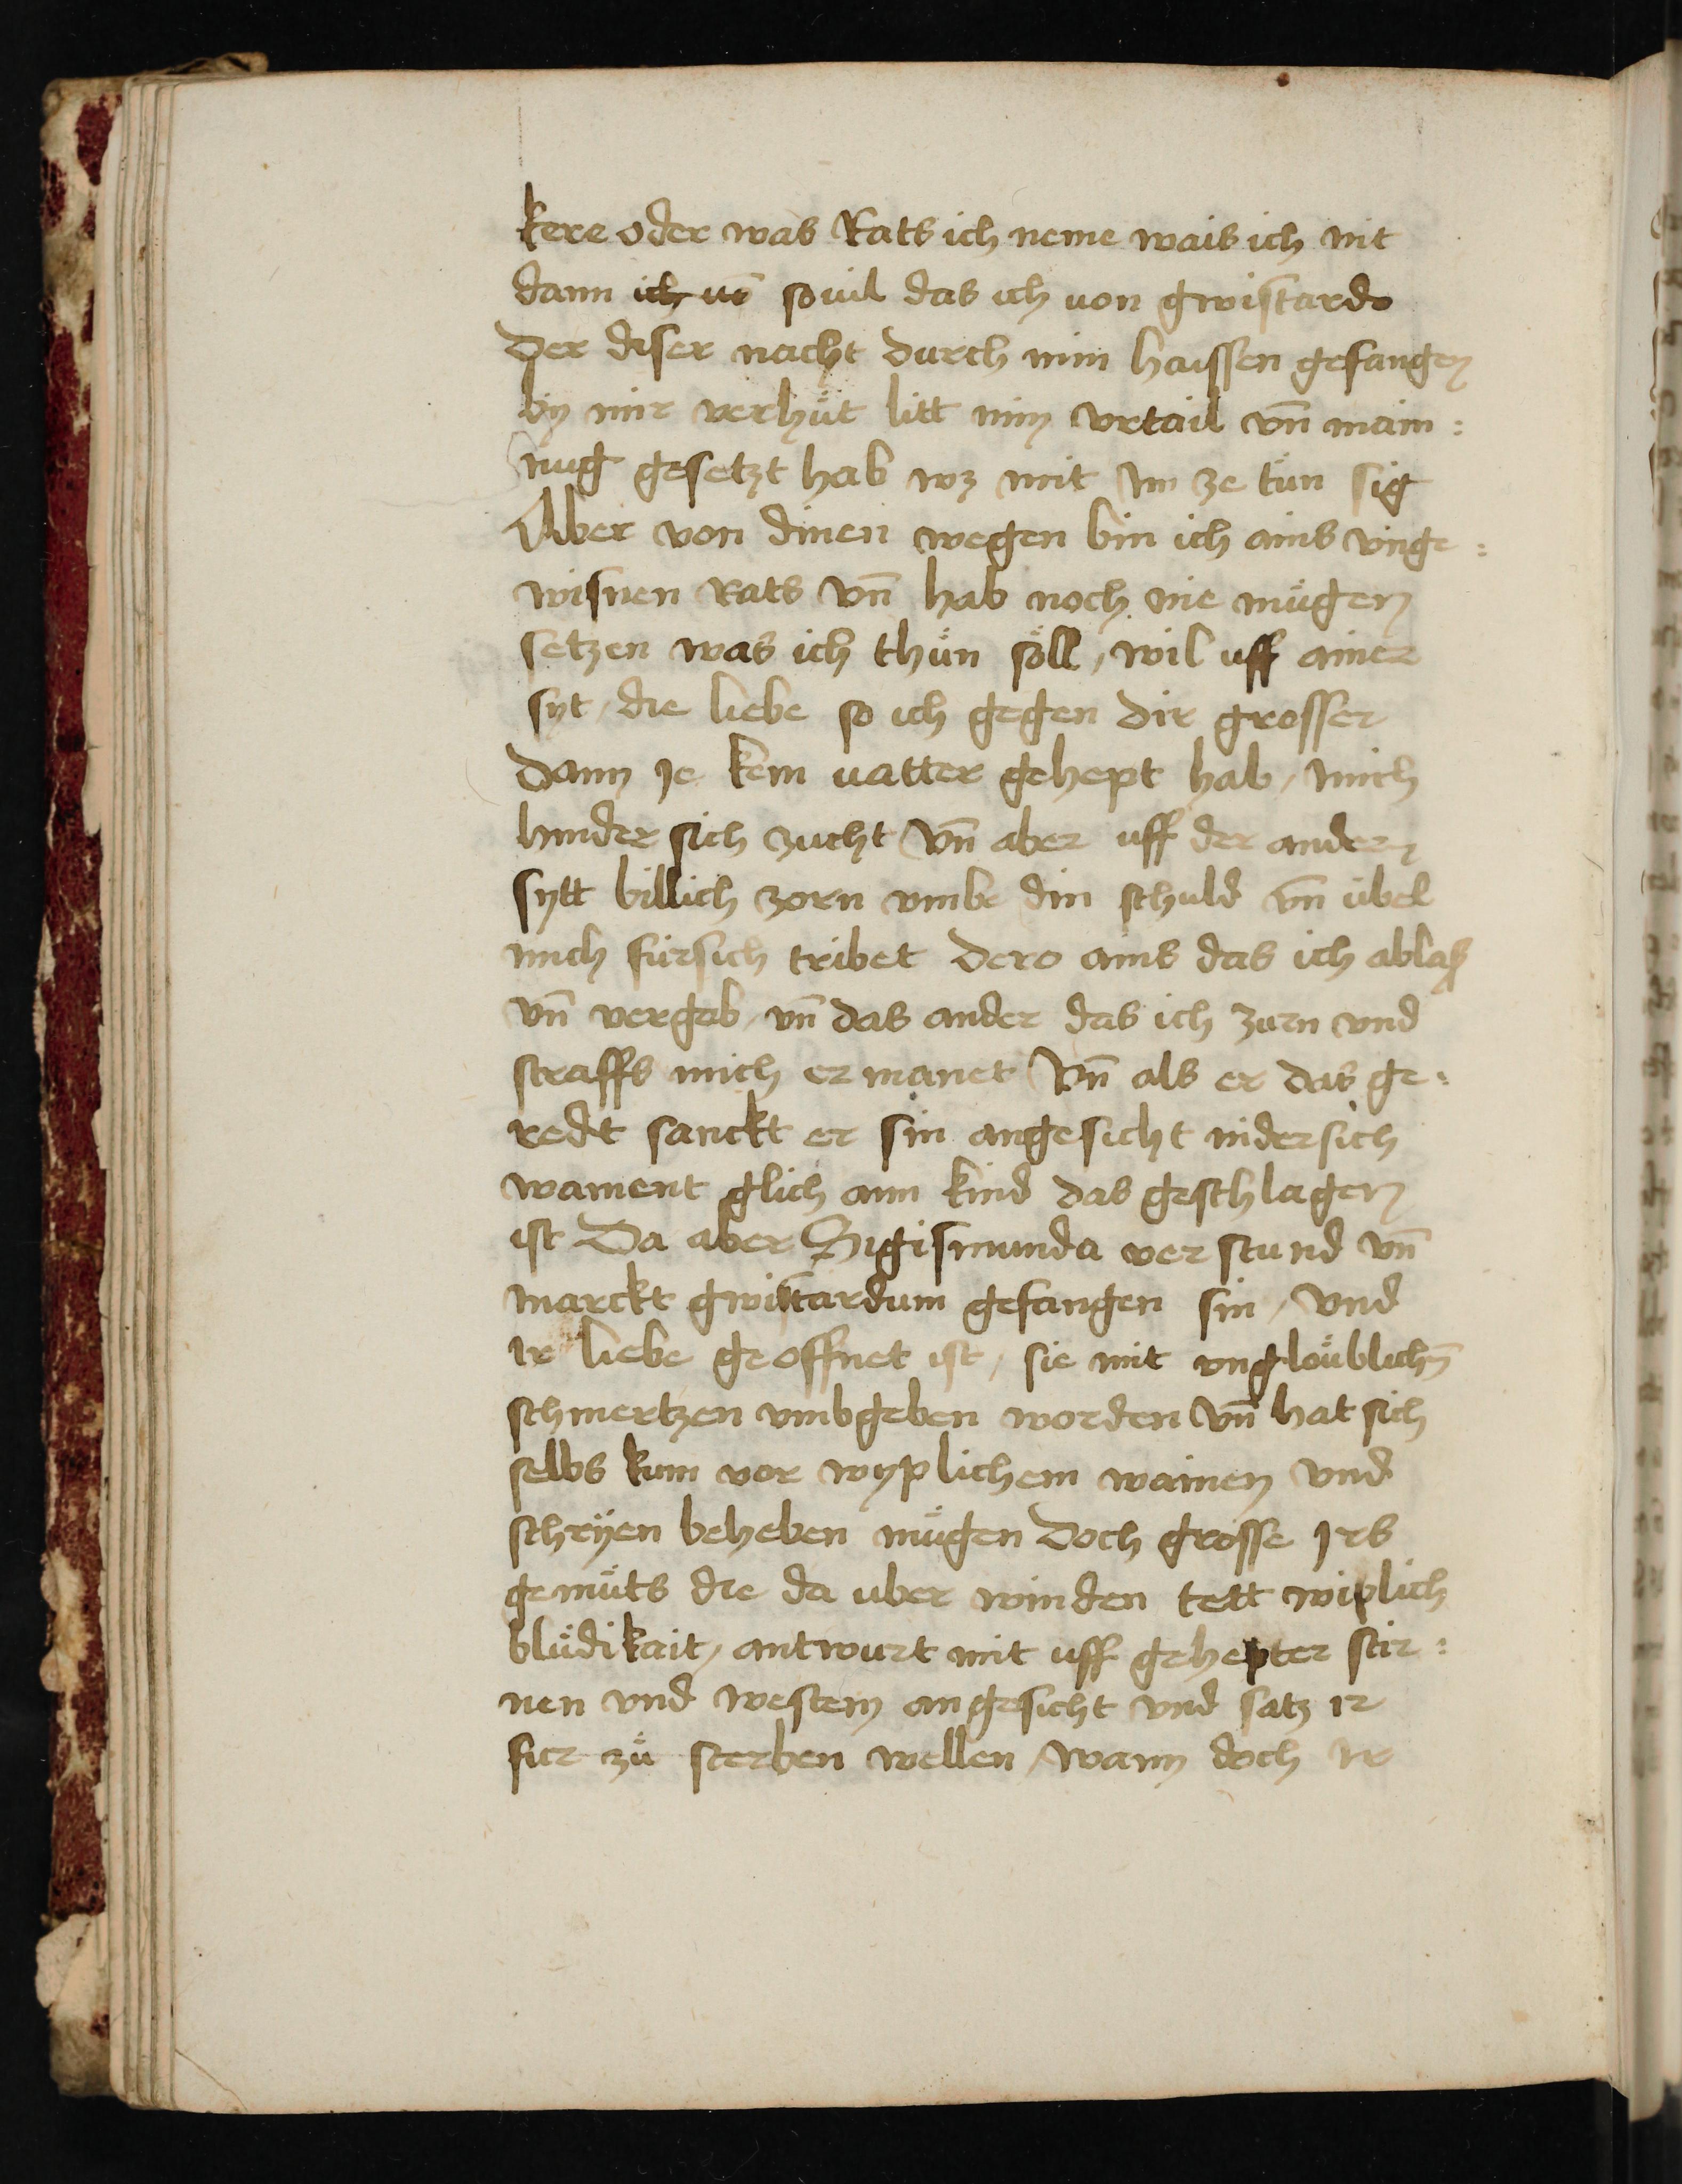 kere oder was Rats ich neme wais ich nit
dann ich vn̄ souil das ich uon gwistardo
Der diser nacht durch min haissen gefangen
by mir verhüt litt min vrtail vn̄ main:
nug gesetzt hab wz mit Im ze tün sig
Aber von dinen wegen bin ich ains vnge:
wisnen Rats vn̄ hab noch nie mügen
setzen was ich thün söll, wil uff ainer
syt, die liebe so ich gegen dir grosser
dann Je kein uatter gehept hab, mich
hinder sich zucht vn̄ aber uff der andern
sytt billich zorn vmbe din schuld vn̄ übel
mich fürsich tribet Dero ains das ich ablaß
vn̄ vergeb, vn̄ das ander das ich zurn vnd
straffs mich ermanet Vn̄ als er das ge:
redt sanckt er sin angesicht nidersich
wainent glich aim kind das geschlagen
ist Da aber Sigismunda verstund vn̄
marckt gwistardum gefangen sin, vnd
ir liebe geoffnet ist, sie mit vnglöublichn̄
schmertzen vmbgeben worden vn̄ hat sich
selbs kum vor wyplichem wainen vnd
schryen beheben mügen Doch grosse Irs
gemüts die da uber winden tett wiplich
blüdikait, antwurt mit uff gehepter stir:
nen vnd westem angesicht vnd satz ir
fur zü sterben wellen, wann doch ir